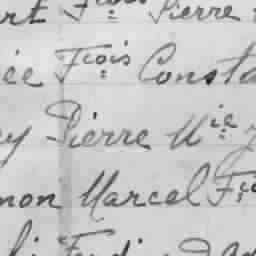 rt Frois Pierre
ée Frois Consta
ey Pierre Mie
mon Marcel Fro